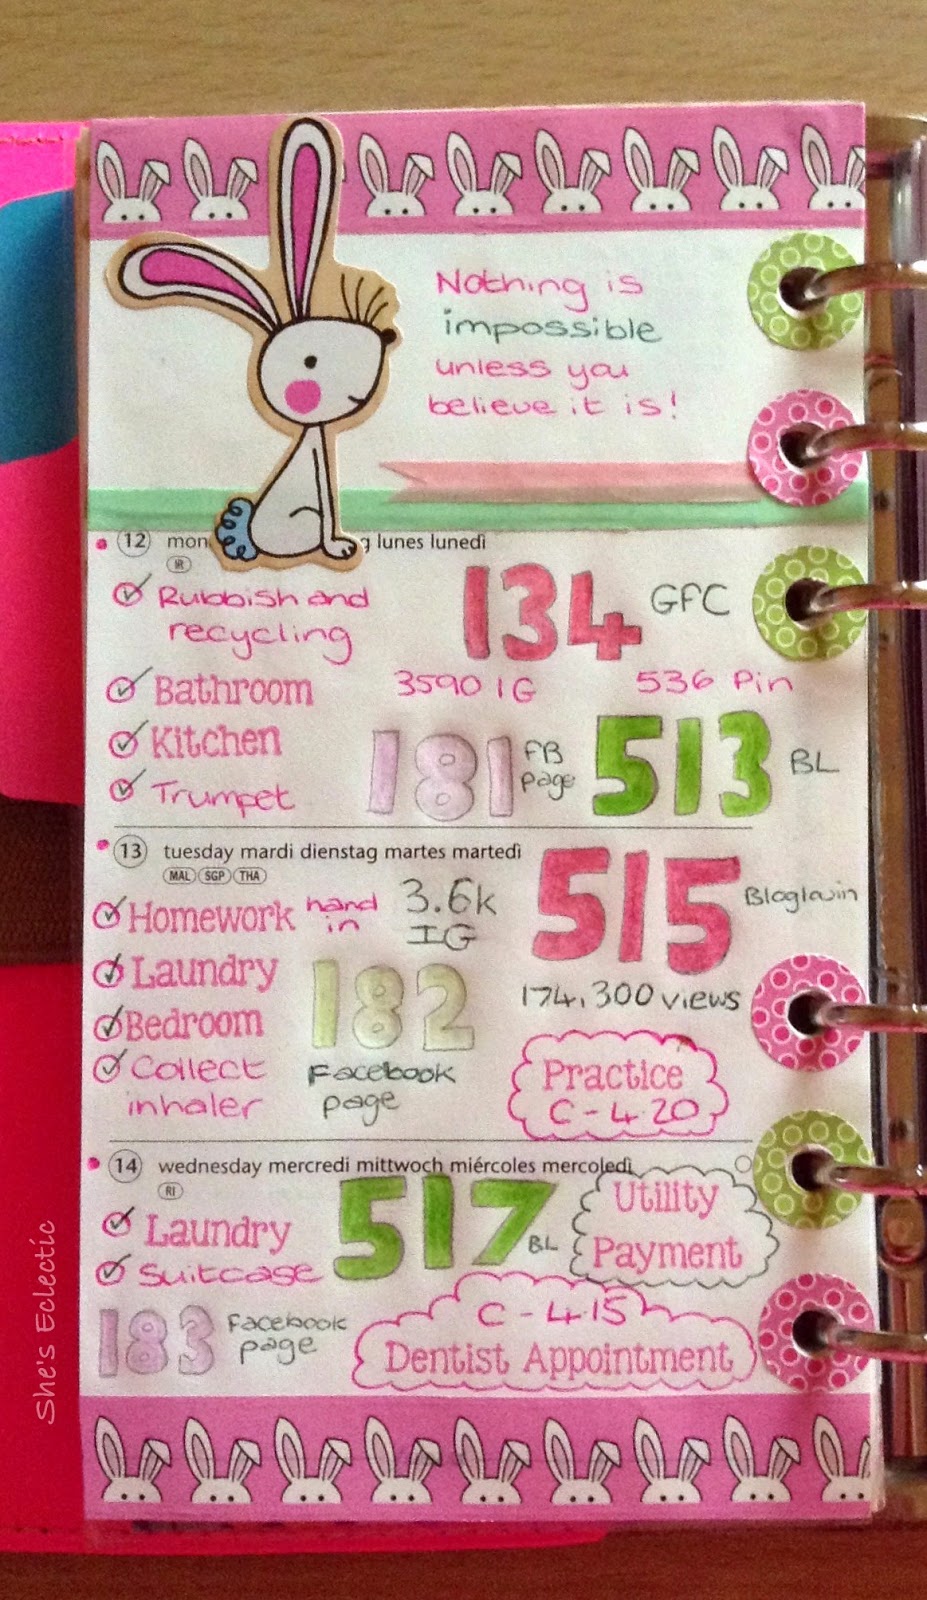 Nothing is
impossible
unless you
believe it is!
12 mon g lunes lunedì
IR
Rubbish and
recycling
134 GFC
Bathroom
3590 IG 536 Pin
Kitchen
181 FB
page
513 BL
Trumpet
13 tuesday mardi dienstag martes martedì
MAL SGP THA
Homework hand
in
3.6k
IG
515 Bloglovin
Laundry
182
174,300 views
Bedroom
Collect
inhaler
Facebook
page
Practice
C - 4.20
14 wednesday mercredi mittwoch miércoles mercoledì
RI
Laundry
517 BL
Utility
Payment
Suitcase
183 Facebook
page
C - 4.15
Dentist Appointment
She's Eclectic